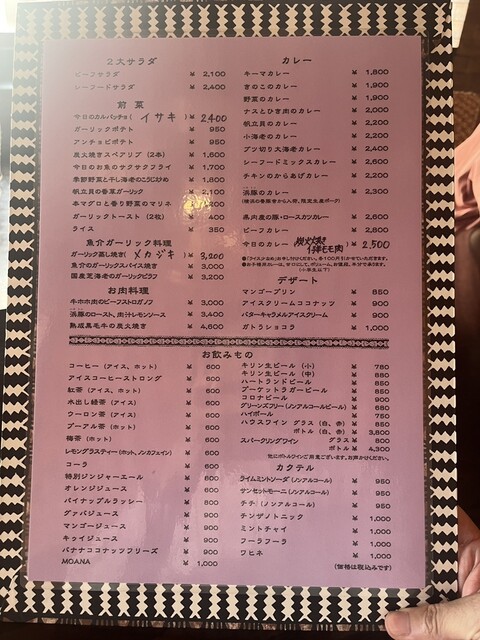 2大サラダ
ビーフサラダ ¥ 2,100
シーフードサラダ ¥ 2,400
前菜
今日のカルパッチョ( イサキ ) ¥ 2,400
ガーリックポテト ¥ 950
アンチョビポテト ¥ 950
炭火焼きスペアリブ(2本) ¥ 1,600
今日のお魚のサクサクフライ ¥ 1,700
季節野菜と干し海老のこうじ炒め ¥ 1,800
帆立貝の香草ガーリック ¥ 2,100
本マグロと香り野菜のマリネ ¥ 2,200
ガーリックトースト(2枚) ¥ 400
ライス ¥ 350
魚介ガーリック料理
ガーリック蒸し焼き( メカジキ ) ¥ 3,200
魚介のガーリックスパイス焼き ¥ 3,000
国産芝海老のガーリックピラフ ¥ 3,200
お肉料理
牛ホホ肉のビーフストロガノフ ¥ 3,000
浜豚のロースト、肉汁レモンソース ¥ 3,400
熟成黒毛牛の炭火焼き ¥ 4,600
カレー
キーマカレー ¥ 1,800
きのこのカレー ¥ 1,900
野菜のカレー ¥ 1,900
ナスとひき肉のカレー ¥ 2,000
帆立貝のカレー ¥ 2,200
小海老のカレー ¥ 2,200
ブツ切り大海老カレー ¥ 2,400
シーフードミックスカレー ¥ 2,600
チキンのからあげカレー ¥ 2,200
浜豚のカレー ¥ 2,300
(横浜の養豚舎から入荷、限定生産ポーク)
黒肉産の豚・ロースカツカレー ¥ 2,600
ビーフカレー ¥ 2,800
今日のカレー( 炭火焼 牛モモ肉 ) ¥ 2,500
デザート
マンゴープリン ¥ 850
アイスクリームココナッツ ¥ 900
バターキャラメルアイスクリーム ¥ 900
ガトウショコラ ¥ 1,000
お飲みもの
コーヒー(アイス、ホット) ¥ 600
アイスコーヒーストロング ¥ 600
紅茶(アイス、ホット) ¥ 600
水出し緑茶(アイス) ¥ 600
ウーロン茶(アイス) ¥ 600
プーアル茶(ホット) ¥ 600
梅茶(ホット) ¥ 600
レモングラスティー(ホット、ノンカフェイン) ¥ 600
コーラ ¥ 600
特別ジンジャーエール ¥ 800
オレンジジュース ¥ 600
パイナップルラッシー ¥ 800
グァバジュース ¥ 900
マンゴージュース ¥ 900
キョイジュース ¥ 900
バナナココナッツフリーズ ¥ 900
MOANA ¥ 1,000
キリン生ビール(小) ¥ 780
キリン生ビール(中) ¥ 850
ハートランドビール ¥ 850
プーケットラガービール ¥ 850
コロナビール ¥ 900
グリーンズフリー(ノンアルコールビール) ¥ 680
ハイボール ¥ 750
ハウスワイン グラス(白、赤) ¥ 850
ボトル(白、赤) ¥ 3,800
スパークリングワイン グラス ¥ 800
ボトル ¥ 4,300
他にボトルワインご用意ございます。お声かけください。
カクテル
ライムミントソーダ(ノンアルコール) ¥ 950
サンセットモーニ(ノンアルコール) ¥ 950
チチ(ノンアルコール) ¥ 950
チンザノトニック ¥ 1,000
ミントチャイ ¥ 1,000
フーラフーラ ¥ 1,000
ワヒネ ¥ 1,000
(価格は税込みです)